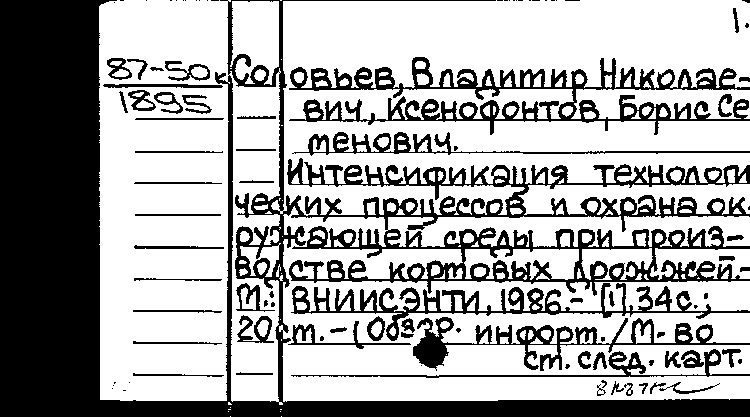 1.
87-50к
1895
Соловьев, Владимир Николае-
вич, Ксенофонтов, Борис Се
менович.
Интенсификация технологи
ческих процессов и охрана ок-
ружающей среды при произ-
водстве кортовых дрожжей.-
М.: ВНИИСЭНТИ, 1986.- [1], 34с.;
20 ст. - (Обзор. информ./М-во
ст. след. карт.